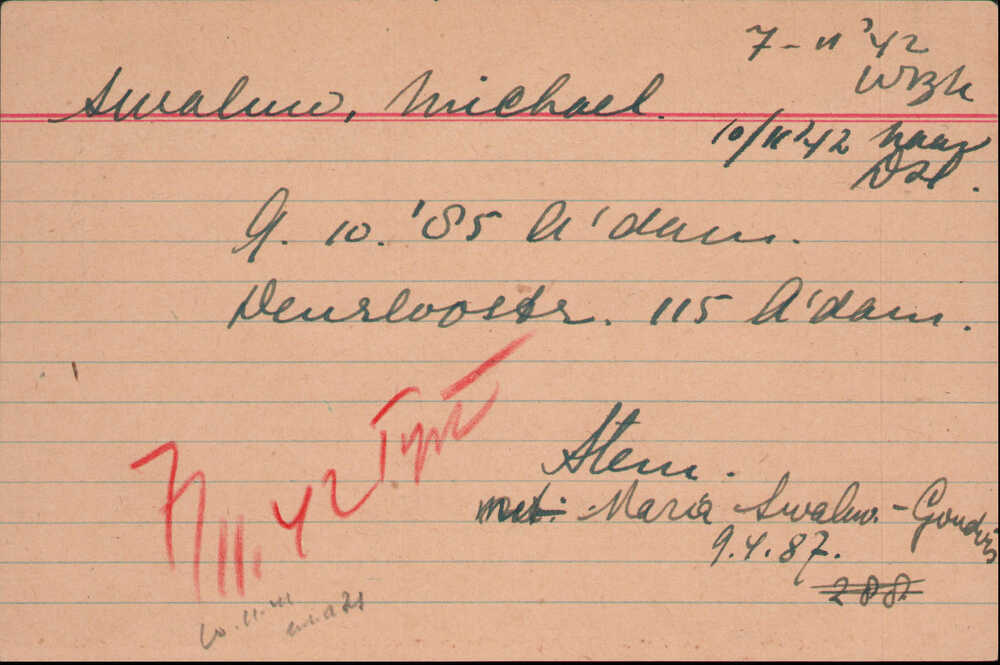 7-11 '42
Wbk
Swaluw, Michael.
10/11 '42 naar
Dsl.
9. 10. '85 A'dam.
Deurloostr. 115 A'dam.
7/11.42
Stem.
met: Maria Swaluw.-Goudvis
9.4.87.
288.